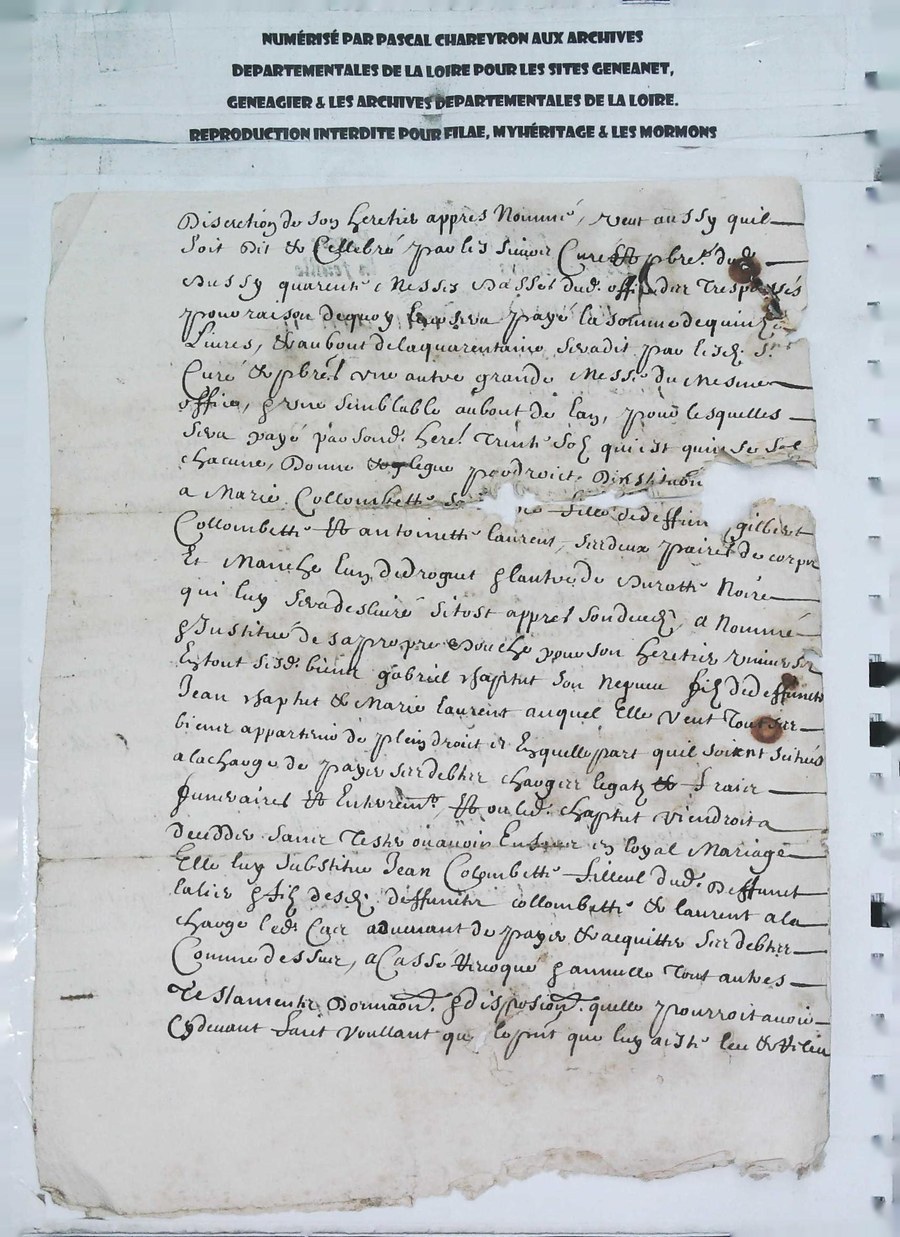 NUMÉRISÉ PAR PASCAL CHAREYRON AUX ARCHIVES
DEPARTEMENTALES DE LA LOIRE POUR LES SITES GENEANET,
GENEAGIER & LES ARCHIVES DEPARTEMENTALES DE LA LOIRE.
REPRODUCTION INTERDITE POUR FILAE, MYHÉRITAGE & LES MORMONS
Discretion de son heretier appres Nommé, veut aussy quil
soit dit & Cellebré par les sieurs Curé & pbres dud.
Bussy quarente Messes basses dud. office des Trespassés
pour raison dequoy sera payé la somme de quinze
Livres, & au bout de la quarentaine sera dit par lesd. Sr
Curé & pbres une autre grande Messe du Mesme
office, & une semblable au bout de lan, pour lesquelles
sera payé par sond. here. Trente solz qui est quinse sol
chacune, Donne legue par droict Dinstitution
a Marie Collombette fille de deffun gilbert
Collombette & antoinette laurent, ses deux paires de corps
Et Manche lun de droguet & lautre de Buratte Noire
qui luy sera deslivré sitost appres son decedz, a Nommé
& Institué de sa propre Bouche pour son heretier univer
En tout sesd. biens gabriel Chaptut son Nepveu filz de deffuncts
Jean Chaptut & Marie laurent auquel Elle veut Tout ses
biens appartenir de plein droit Enquelle part quil soient scitués
a la charge de payer ses debtes charges legatz & fraies
funeraires & Enterremt, & ou led. Chaptut viendroit a
decedder sans Tester ou avoir Enfans en loyal Mariage
Elle luy Substitue Jean Colombette filleul dud. Deffunct
& filz desd. deffuncts collombette & laurent a la
charge led. Cas advenant de payer & acquitter ses debtes
Comme dessus, a Casse Revoque & annulle Tout autres
Testaments Donnaon. & disposion. quelle pourroit avoir
Cydevant faict voullant que le pnt que luy a esté leu & releu